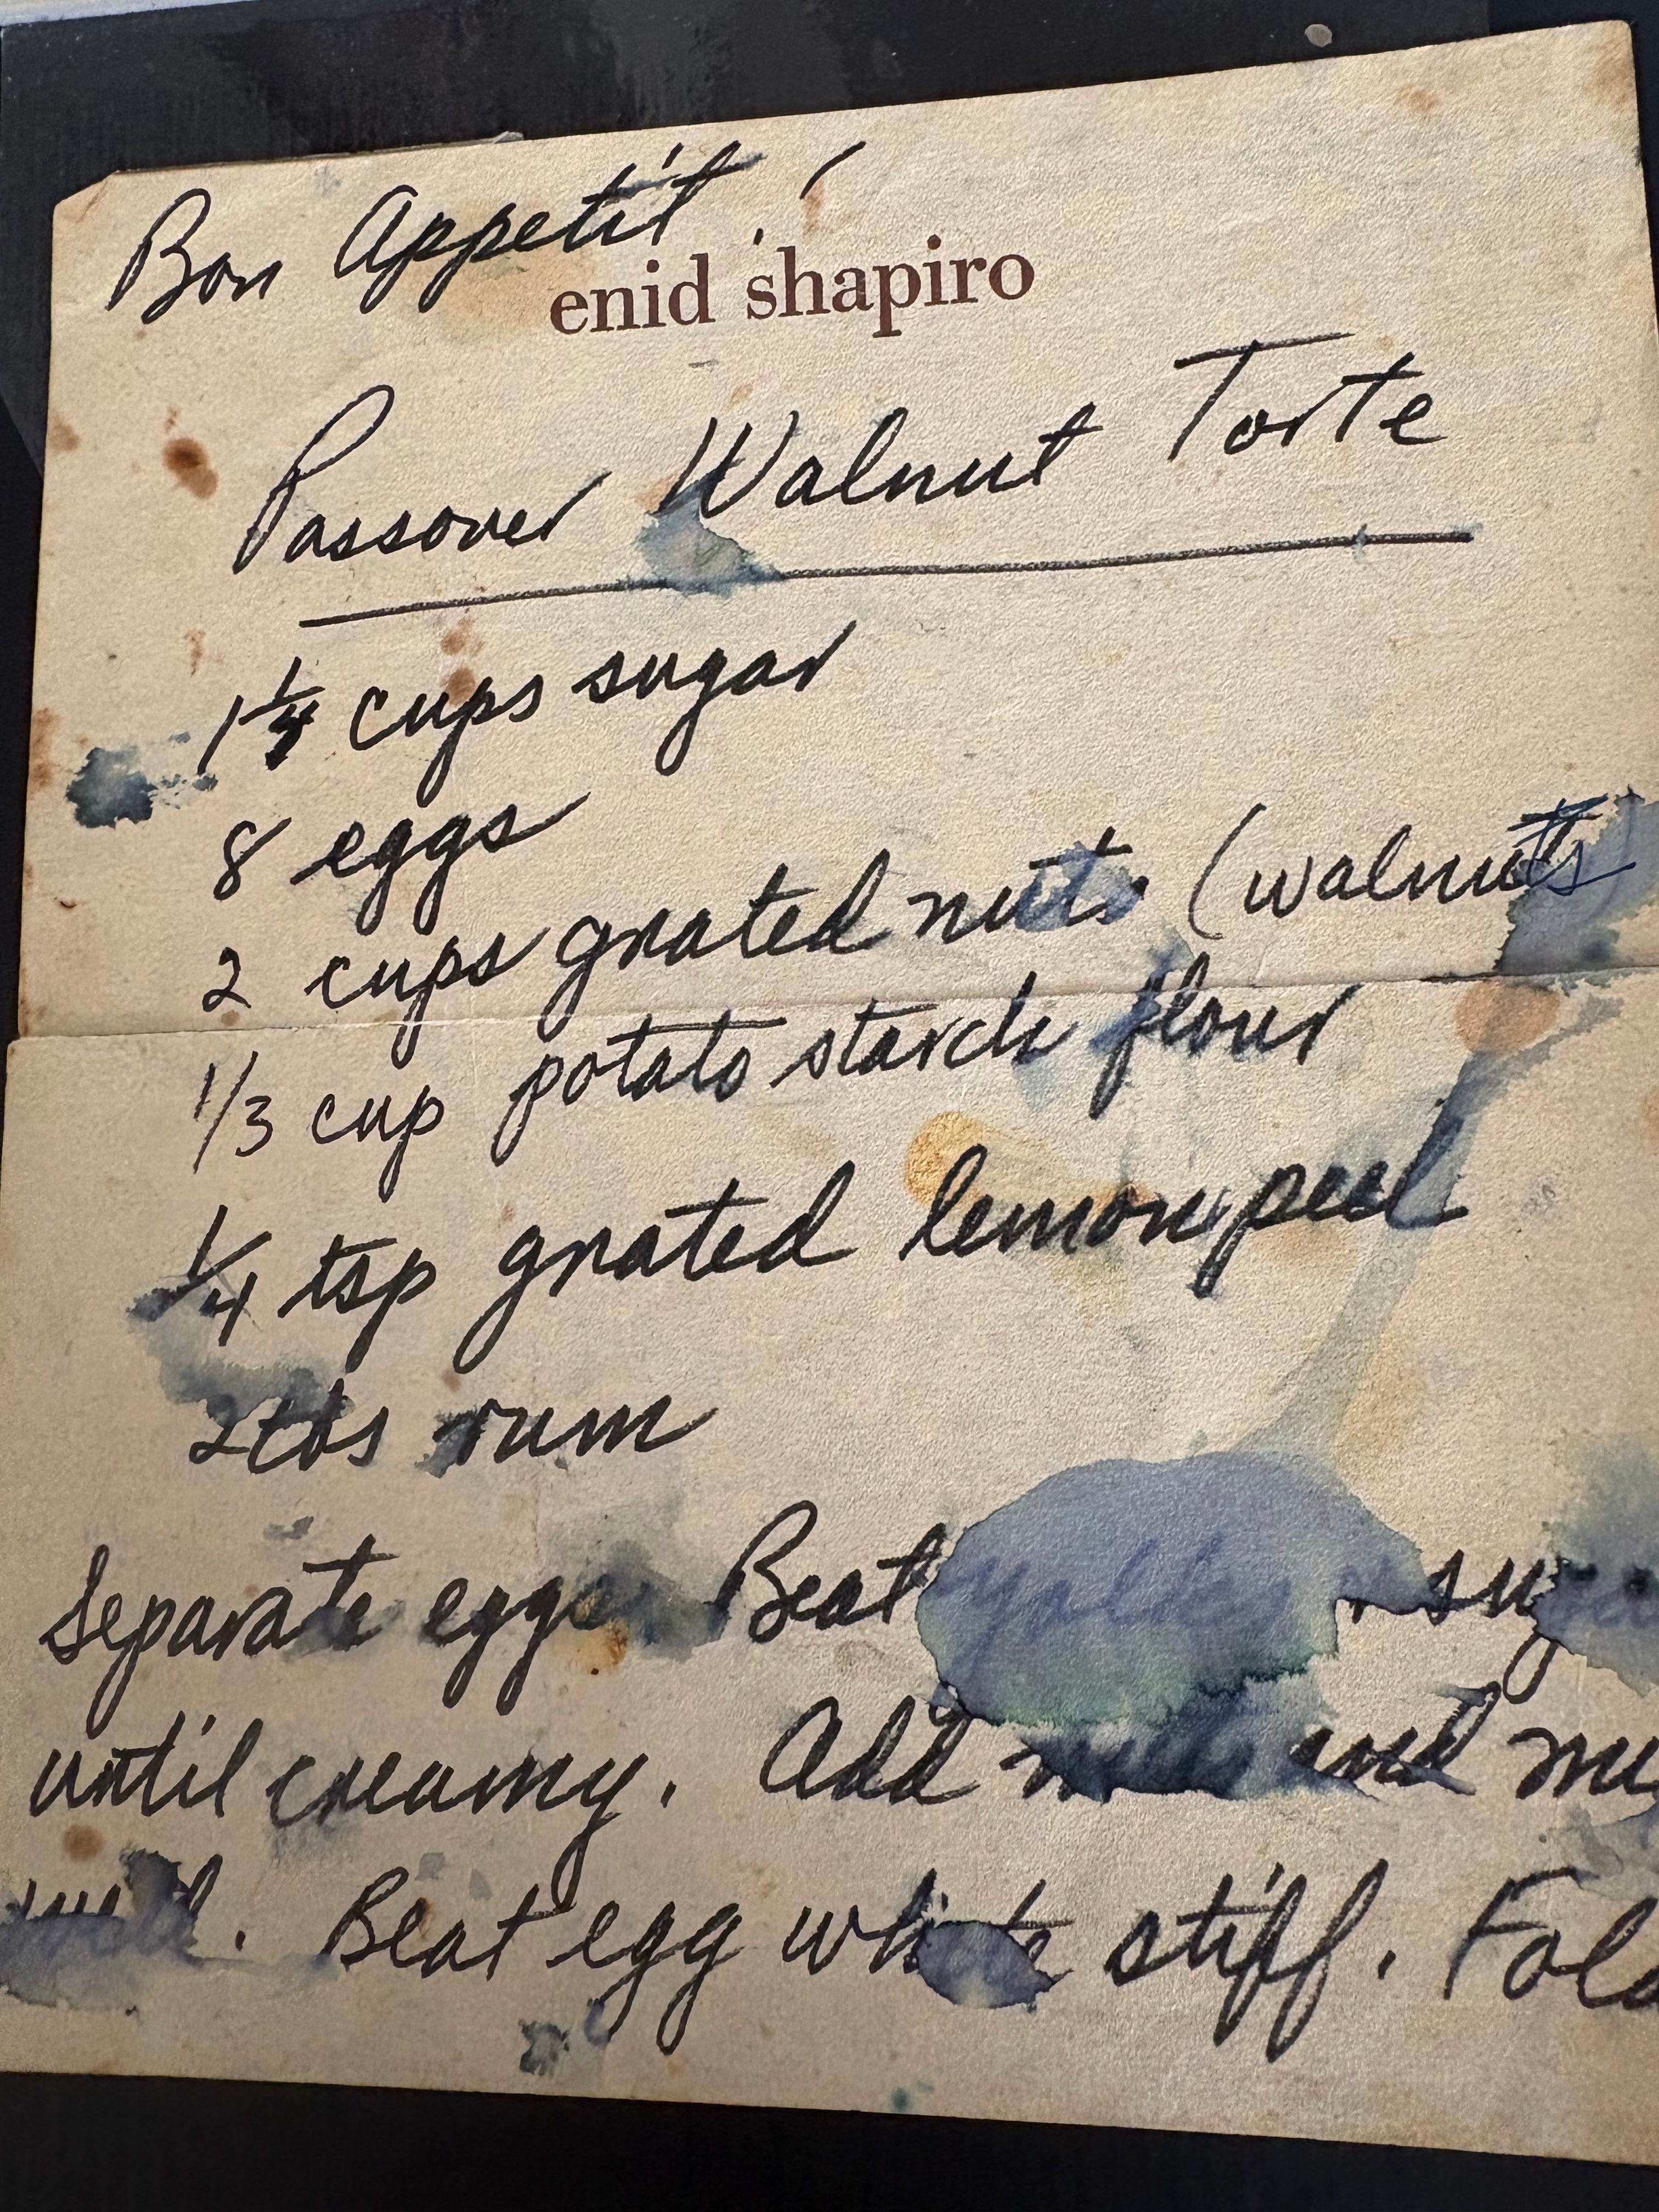 Bon Appetit!
enid shapiro
Passover Walnut Torte
1 1/4 cups sugar
8 eggs
2 cups grated nuts (walnuts
1/3 cup potato starch flour
1/4 tsp grated lemon peel
2 tbs rum
Separate eggs. Beat yolks
until creamy. Add and
well. Beat egg white stiff. Fold